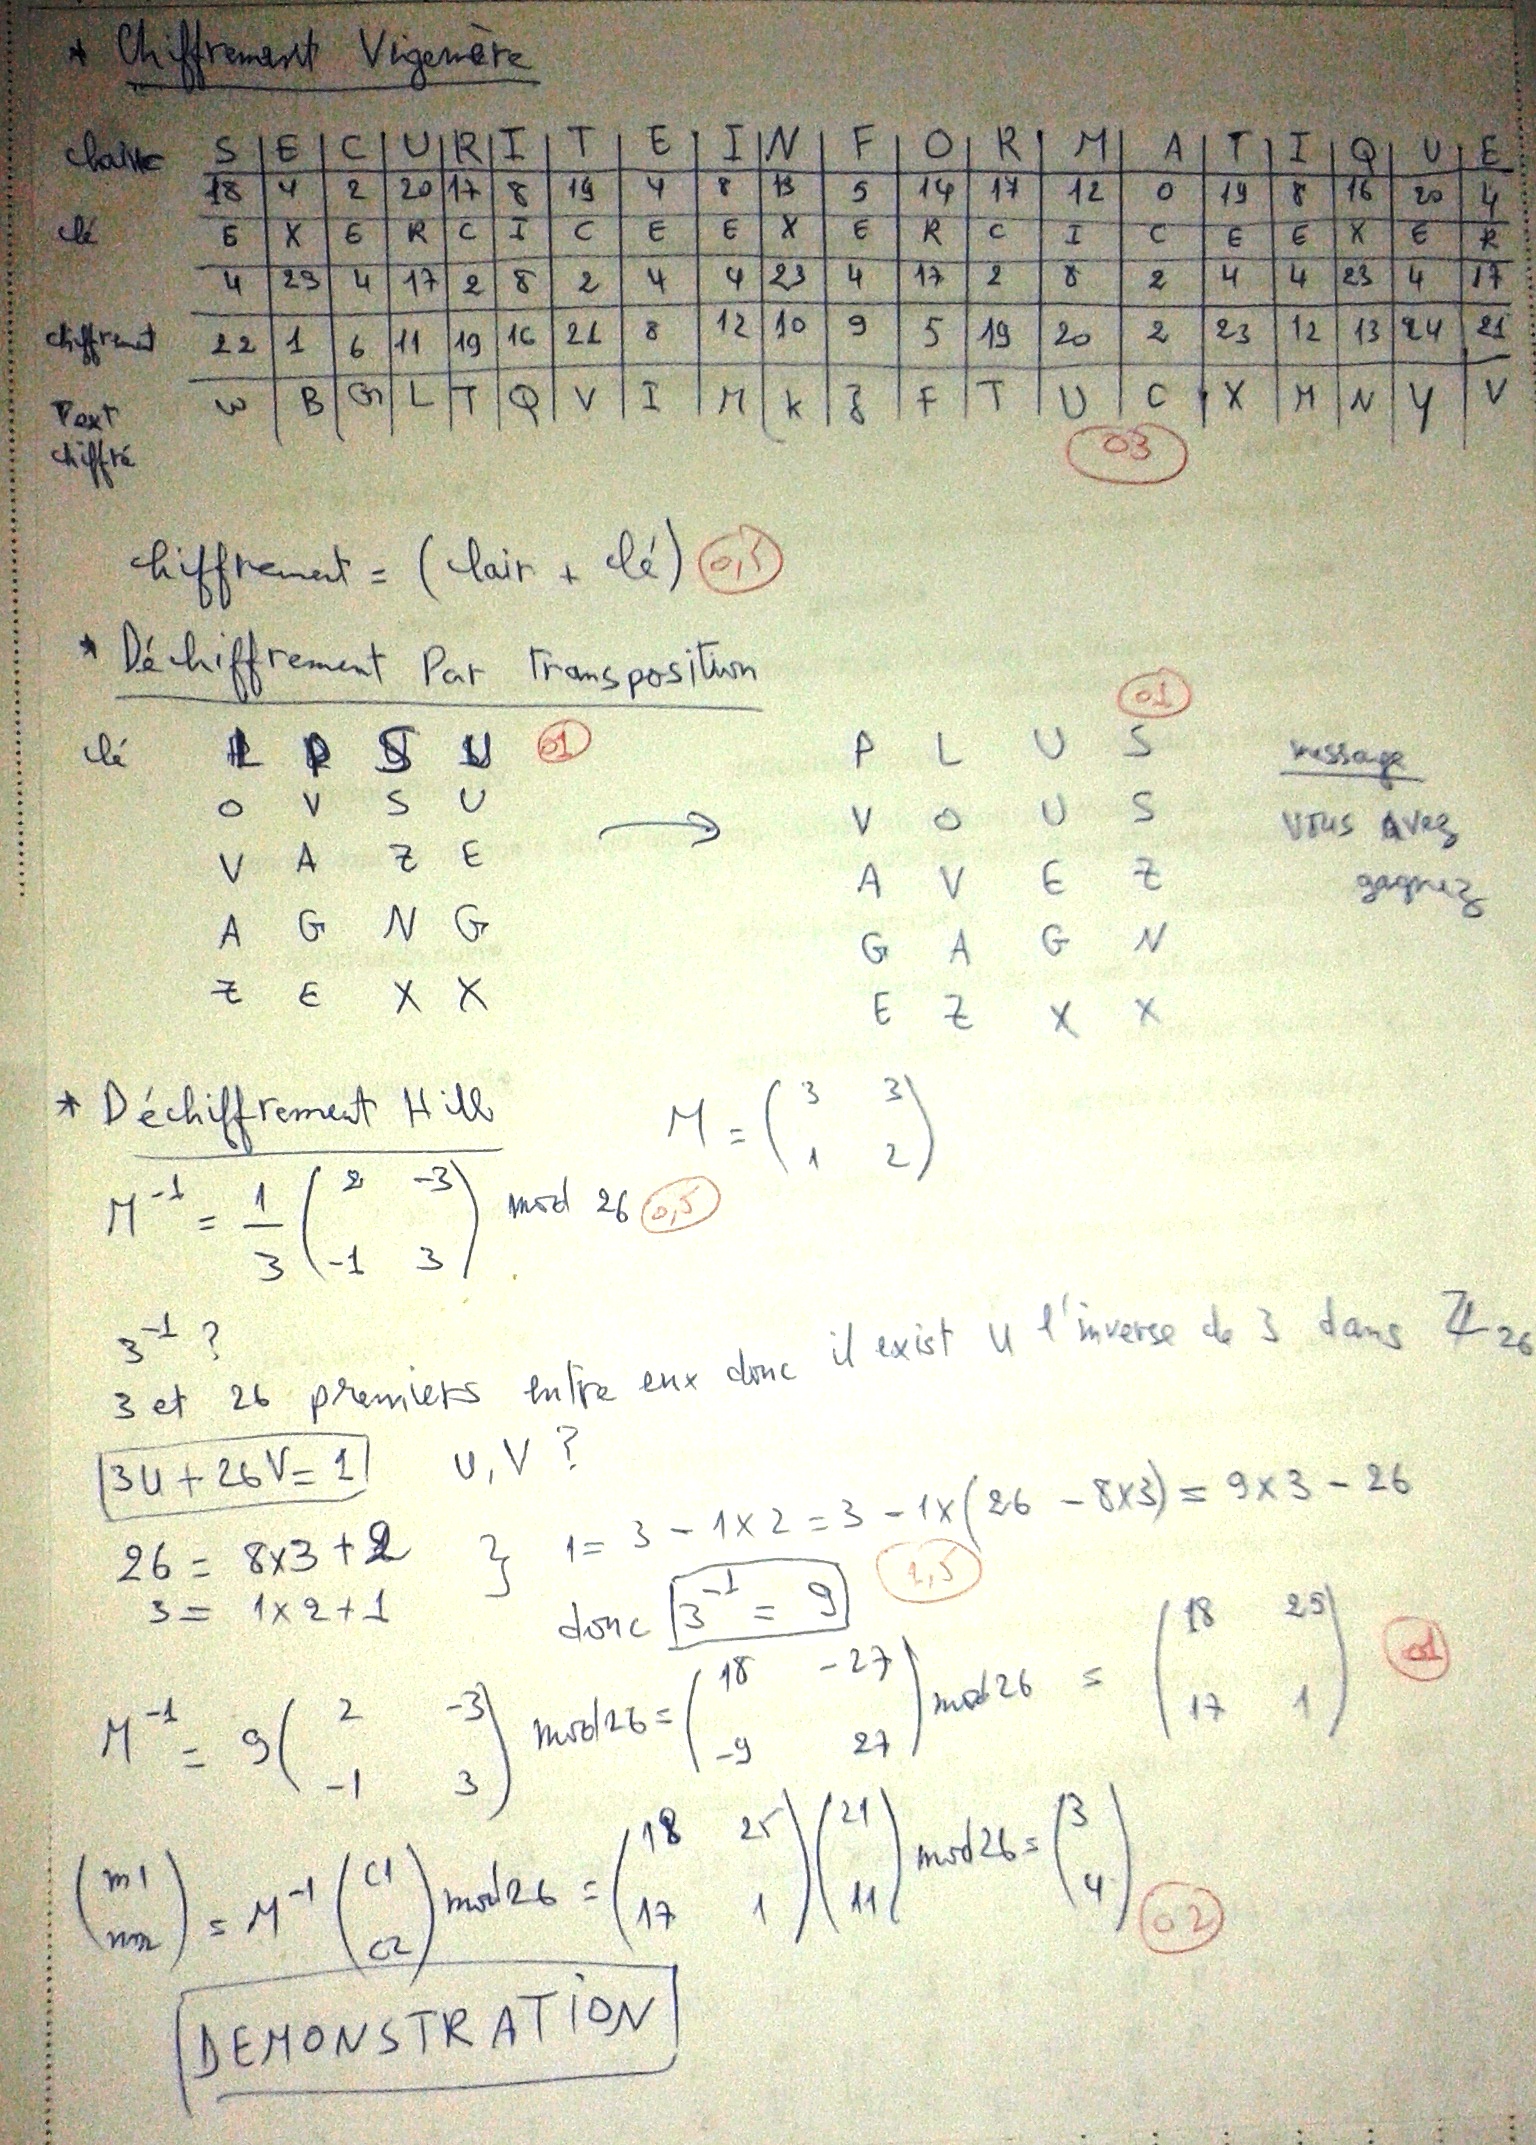 * Chiffrement Vigenère
Claire S E C U R I T E I N F O R M A T I Q U E
18 4 2 20 17 8 19 4 8 13 5 14 17 12 0 19 8 16 20 4
clé E X E R C I C E E X E R C I C E E X E R
4 23 4 17 2 8 2 4 4 23 4 17 2 8 2 4 4 23 4 17
chiffrement 22 1 6 11 19 16 21 8 12 10 9 5 19 20 2 23 12 13 24 21
Text chiffré W B G L T Q V I M K J F T U C X M N Y V
03
chiffrement = (clair + clé) 0,5
* Déchiffrement Par transposition
01
clé L P S U 01 P L U S message
O V S U → V O U S vous avez
V A Z E A V E Z gagnez
A G N G G A G N
Z E X X E Z X X
* Déchiffrement Hill M = (3 3
1 2)
M⁻¹ = 1/3 (2 -3
-1 3) mod 26 0,5
3⁻¹ ?
3 et 26 premiers entre eux donc il exist U l'inverse de 3 dans ℤ26
3U + 26V = 1 U, V ?
26 = 8x3 + 2 } 1 = 3 - 1x2 = 3 - 1x(26 - 8x3) = 9x3 - 26
3 = 1x2+1 donc 3⁻¹ = 9 1,5
M⁻¹ = 9(2 -3
-1 3) mod 26 = (18 -27
-9 27) mod 26 = (18 25
17 1) 01
(m1
m2) = M⁻¹ (C1
C2) mod 26 = (18 25
17 1) (21
11) mod 26 = (3
4) 02
DEMONSTRATION